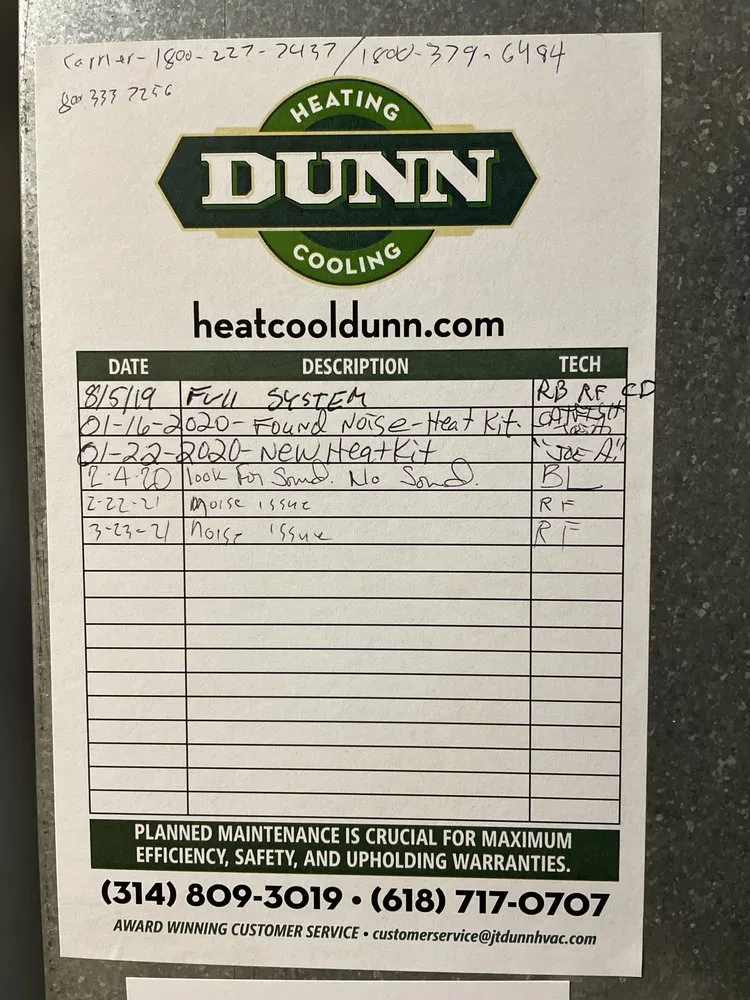 Carrier-1800-227-7437/1800-379-6484
800 333 7256
HEATING
DUNN
COOLING
heatcooldunn.com
DATE DESCRIPTION TECH
8/5/19 FULL SYSTEM RB RF CD
01-16-2020- FOUND NOISE-Heat Kit.
01-22-2020- NEW HeatKit "JOE A."
2-4-20 look For Sound. No Sound. BL
2-22-21 noise issue RF
3-23-21 noise issue RF
PLANNED MAINTENANCE IS CRUCIAL FOR MAXIMUM
EFFICIENCY, SAFETY, AND UPHOLDING WARRANTIES.
(314) 809-3019 • (618) 717-0707
AWARD WINNING CUSTOMER SERVICE • customerservice@jtdunnhvac.com